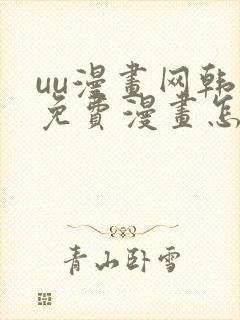 uu漫畫网韩
免費漫畫怎
青山卧雪